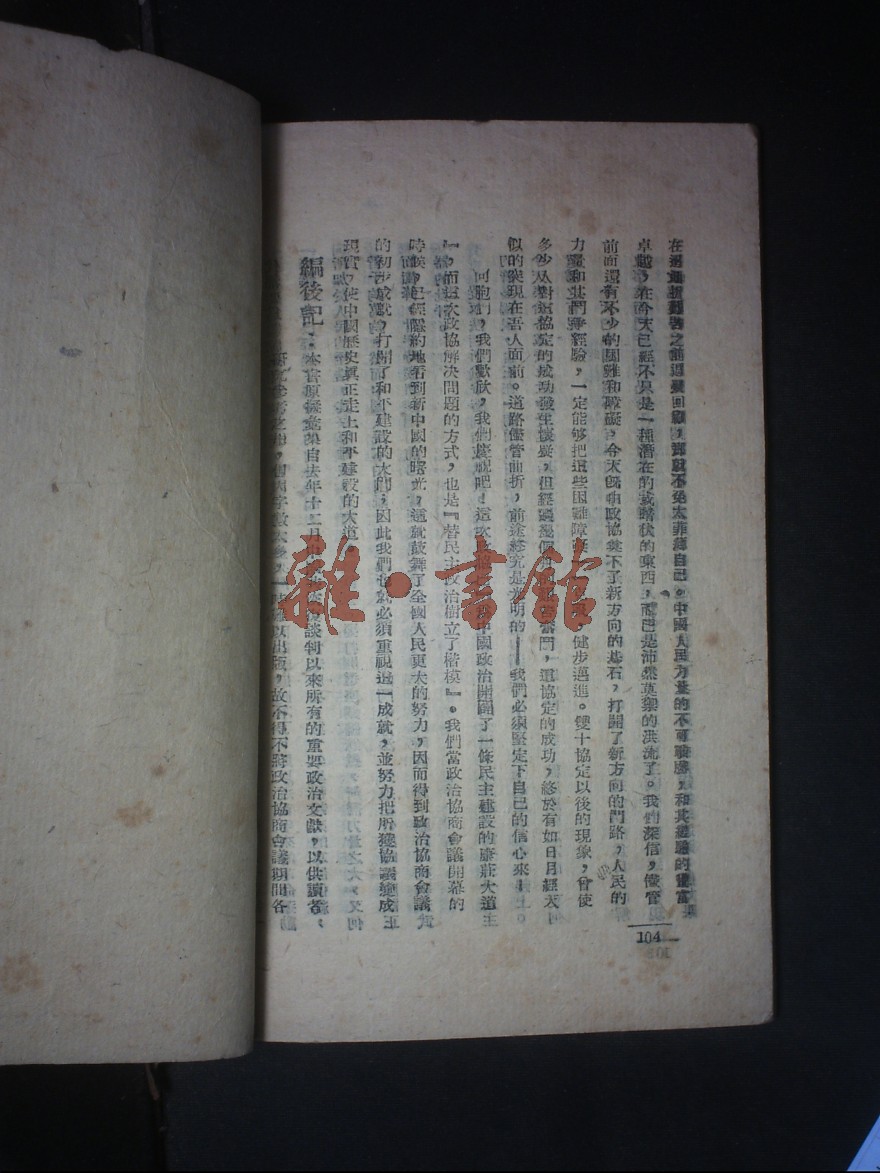 卓越,在今天已經不只是一種潛在的或暗伏的東西,而已是沛然莫禦的洪流了。我們深信,儘管
前面還有不少的困難和障礙,今天旣由政協奠下了新方向的基石,打開了新方向的門路,人民的
力量和其鬥爭經驗,一定能够把這些困難障礙 健步邁進。雙十協定以後的現象,曾使
多少人對這協定的成功發生懷疑,但經 這協定的成功,終於有如日月經天
似的湧現在吾人面前。道路儘管曲折,前途終究是光明的——我們必須堅定下自己的信心來
同胞們,我們歡欣,我們慶祝吧!這次 中國政治開闢了一條民主建設的康莊大道
』,而這次政協解決問題的方式,也是『替民主政治樹立了楷模』。我們當政治協商會議開幕的
時候,已經隱約地看到新中國的曙光,這就鼓舞了全國人民更大的努力,因而得到政治協商會議
的初步成就,打開了和平建設的大門;因此我們也就必須重視這一成就,並努力把所獲協議變成
現實,使中國歷史眞正走上和平建設的大道。
編後記:本書原擬彙集自去年十二月 談判以來所有的重要政治文獻,以供讀者
研究參考之用,但因字數太多,一時難以出版,故不得不將政治協商會議期間各
104
雜·書館